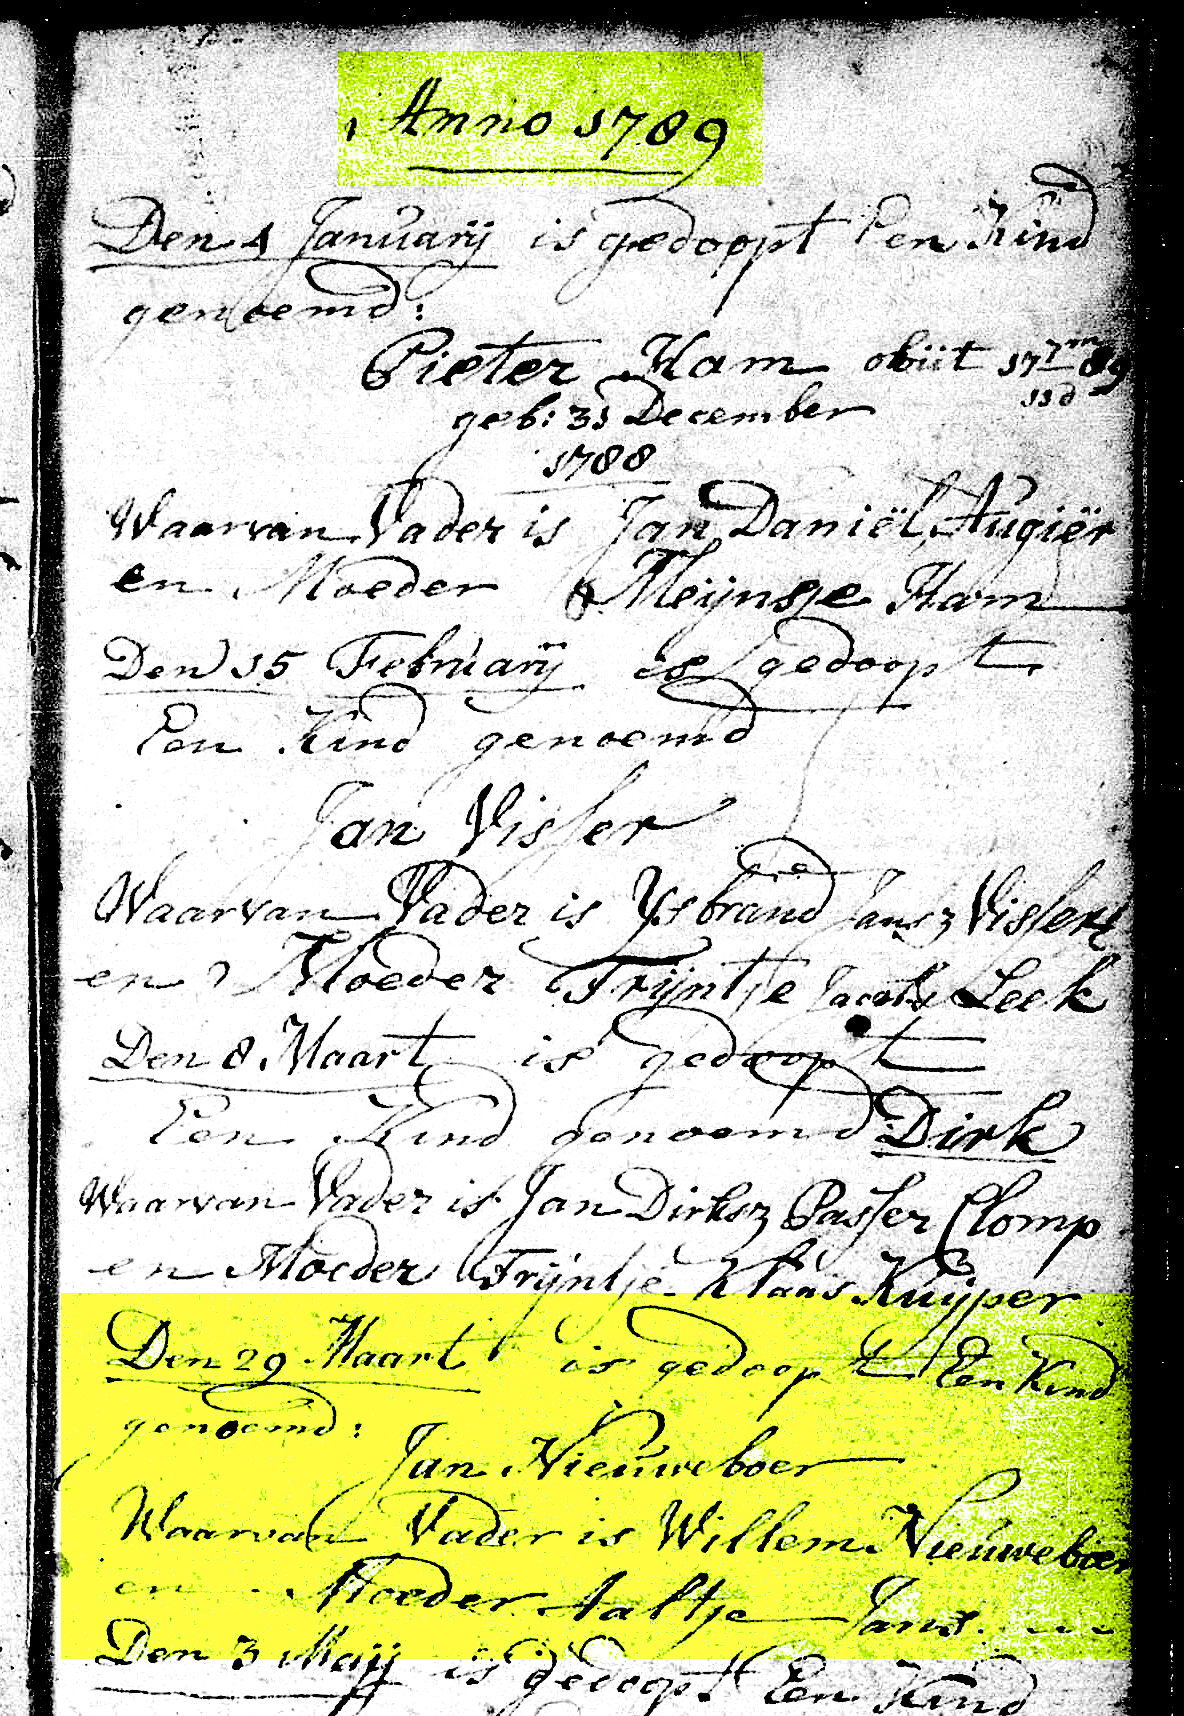 Anno 1789
Den 4 Januarij is gedoopt Een Kind
genoemd:
Pieter Ham obiit 17 89
geb: 31 December
1788
Waarvan Vader is Jan Daniël Augiër
en Moeder Meijnsje Ham
Den 15 Februarij is gedoopt
Een Kind genoemd
Jan Visser
Waarvan Vader is Ysbrand Jansz Visser
en Moeder Trijntje Jacobs Leek
Den 8 Maart is gedoopt
Een Kind genoemd Dirk
Waarvan Vader is Jan Dirksz Passer Clomp
en Moeder Trijntje Klaas Kuijper
Den 29 Maart is gedoopt Een Kind
genoemd:
Jan Nieuweboer
Waarvan Vader is Willem Nieuweboer
en Moeder Aaltje Jans
Den 3 Maij is gedoopt Een Kind